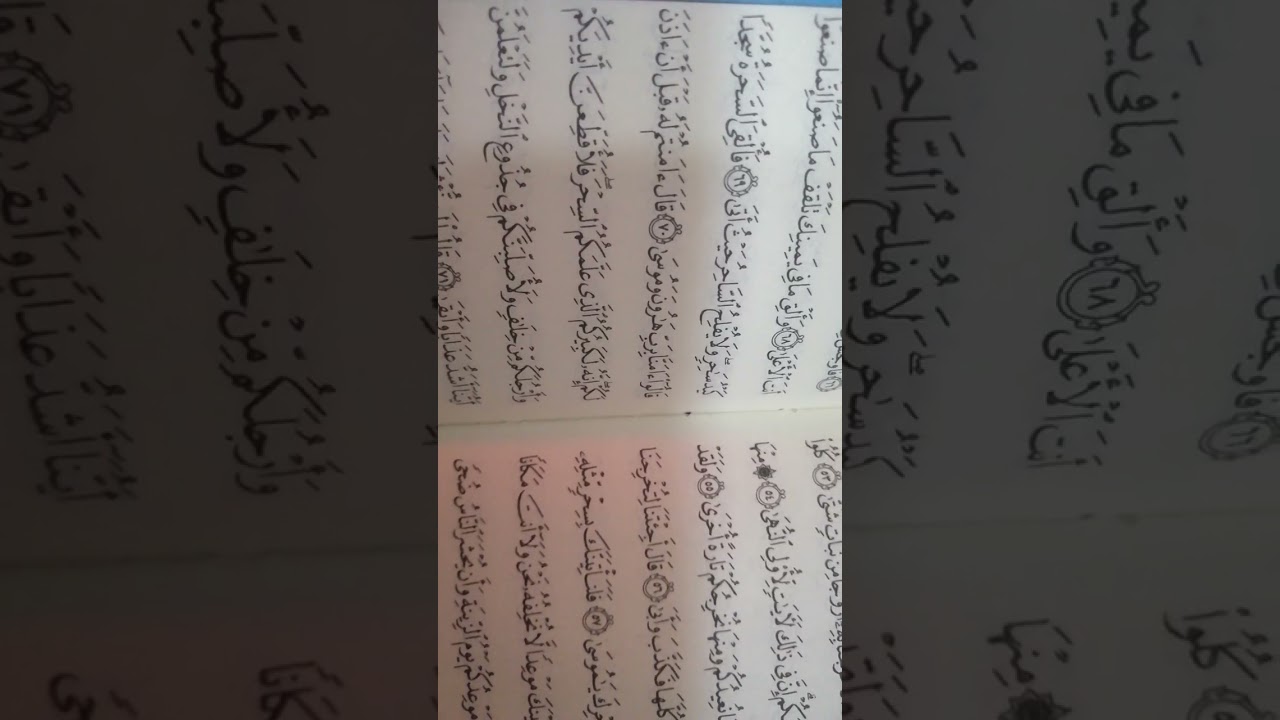 مِن نَّبَاتٍ شَتَّىٰ ٥٣ كُلُوا۟
إِنَّ فِى ذَٰلِكَ لَأٓيَٰتٍ لِّأُو۟لِى ٱلنُّهَىٰ ٥٤ مِنْهَا
نُعِيدُكُمْ وَمِنْهَا نُخْرِجُكُمْ تَارَةً أُخْرَىٰ ٥٥ وَلَقَدْ
كُلَّهَا فَكَذَّبَ وَأَبَىٰ ٥٦ قَالَ أَجِئْتَنَا لِتُخْرِجَنَا
يَٰمُوسَىٰ ٥٧ فَلَنَأْتِيَنَّكَ بِسِحْرٍ مِّثْلِهِۦ
مَوْعِدًا لَّا نُخْلِفُهُۥ نَحْنُ وَلَآ أَنتَ مَكَانًا
مَوْعِدُكُمْ يَوْمُ ٱلزِّينَةِ وَأَن يُحْشَرَ ٱلنَّاسُ ضُحًى
أَنتَ ٱلْأَعْلَىٰ ٦٨ وَأَلْقِ مَا فِى يَمِينِكَ تَلْقَفْ مَا صَنَعُوٓا۟ إِنَّمَا صَنَعُوا۟
كَيْدُ سَٰحِرٍ وَلَا يُفْلِحُ ٱلسَّاحِرُ حَيْثُ أَتَىٰ ٦٩ فَأُلْقِىَ ٱلسَّحَرَةُ سُجَّدًا
قَالُوٓا۟ ءَامَنَّا بِرَبِّ هَٰرُونَ وَمُوسَىٰ ٧٠ قَالَ ءَامَنتُمْ لَهُۥ قَبْلَ أَنْ ءَاذَنَ
لَكُمْ إِنَّهُۥ لَكَبِيرُكُمُ ٱلَّذِى عَلَّمَكُمُ ٱلسِّحْرَ فَلَأُقَطِّعَنَّ أَيْدِيَكُمْ
وَأَرْجُلَكُم مِّنْ خِلَٰفٍ وَلَأُصَلِّبَنَّكُمْ فِى جُذُوعِ ٱلنَّخْلِ وَلَتَعْلَمُنَّ
أَيُّنَآ أَشَدُّ عَذَابًا وَأَبْقَىٰ ٧١